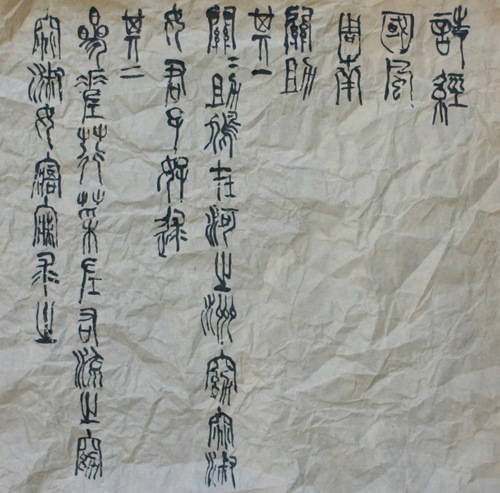 詩經
國風
周南
關雎
其一
關〻雎鳩在河之洲窈窕淑
女君子好逑
其二
參差荇菜左右流之窈
窕淑女寤寐求之